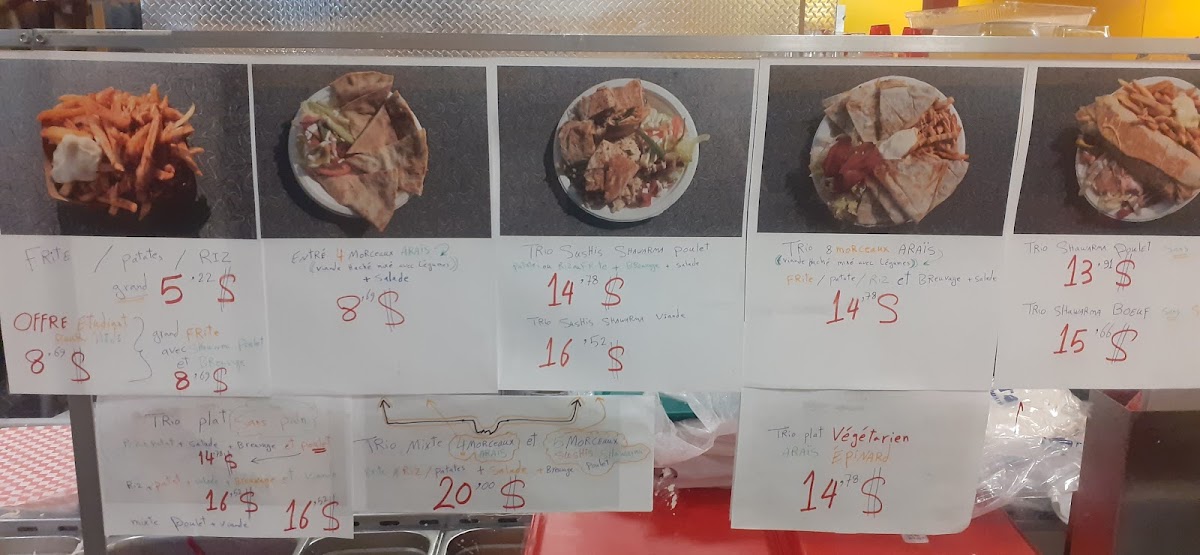 FRITE / patates / RIZ
grand 5.22 $
OFFRE étudiant
8.69 $
grand FRite
avec shawarma poulet
et BReuvage
8.69 $
Entré 4 MORCEAUX ARAIS
(viande haché mixé avec Légumes)
+ Salade
8.69 $
TRIO SUSHIS SHAWARMA poulet
+ BReuvage + salade
14.78 $
TRIO SUSHIS SHAWARMA Viande
16.52 $
TRIO 8 morceaux ARAIS
(viande haché mixé avec Légumes)
FRite / patate / Riz et BReuvage + salade
14.78 $
TRIO SHAWARMA Poulet
13.91 $
TRIO SHAWARMA BOEUF
15.66 $
TRIO plat (Sans pain)
+ Salade + BReuvage et poulet
14.78 $
Riz + patat + salade + BReuvage et viande
16.52 $
mixte Poulet + viande 16.52 $
TRIO Mixte 4 MORCEAUX ARAIS et 5 MORCEAUX SUSHIS shawarma poulet
RIZ / patates + Salade + BReuvage
20.00 $
TRIO plat Végétarien
ARAIS EPINARD
14.78 $